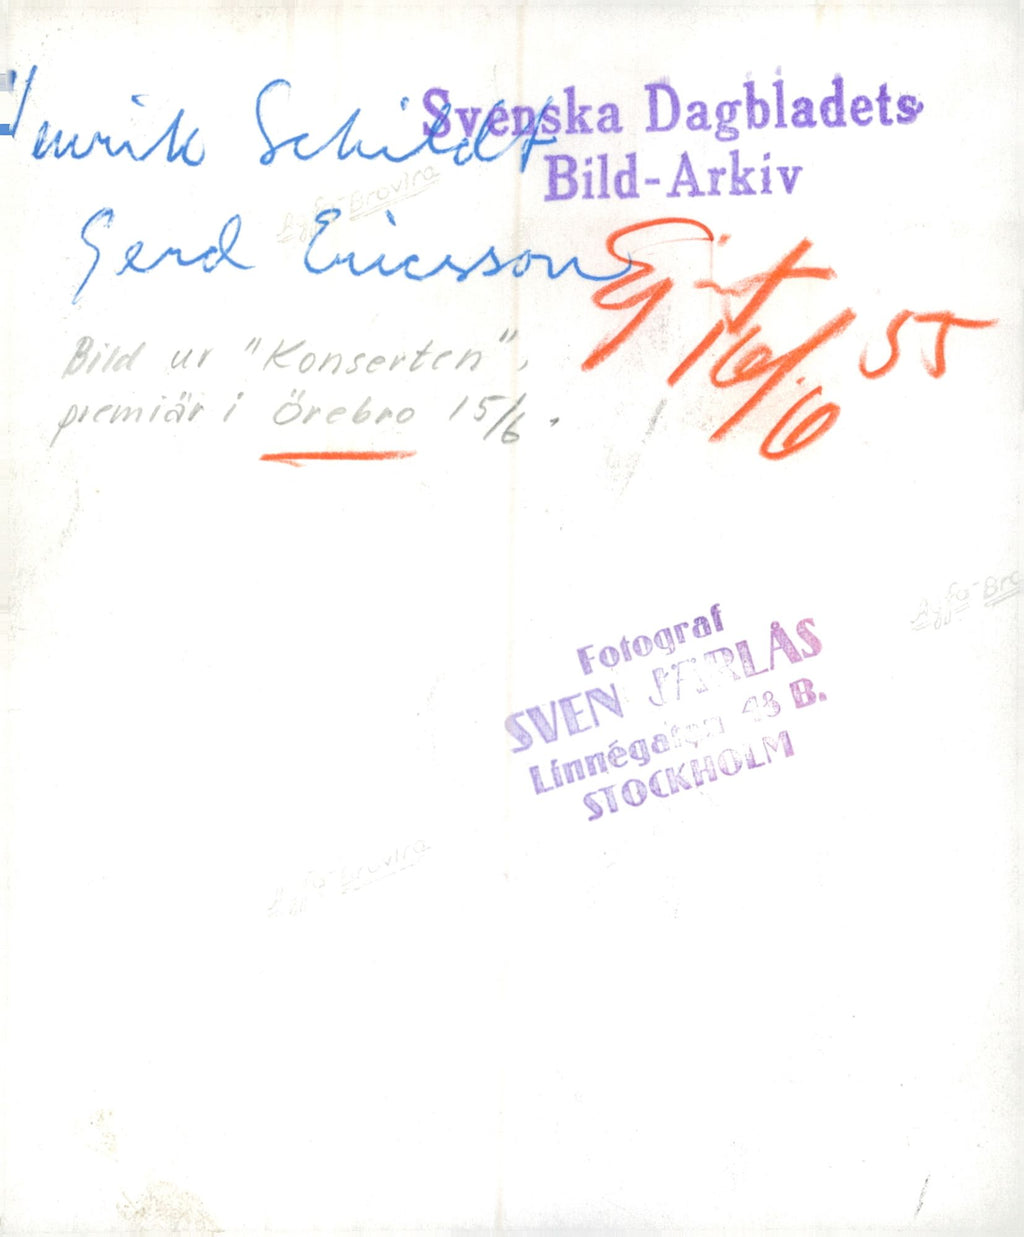 Henrik Schildt
Svenska Dagbladets
Bild-Arkiv
Agfa-Brovira
Gerd Ericsson
16/6 55
Bild ur "Konserten",
premiär i Örebro 15/6.
Agfa-Bro
Fotograf
SVEN JÄRLÅS
Linnégatan 43 B.
STOCKHOLM
Agfa-Brovira